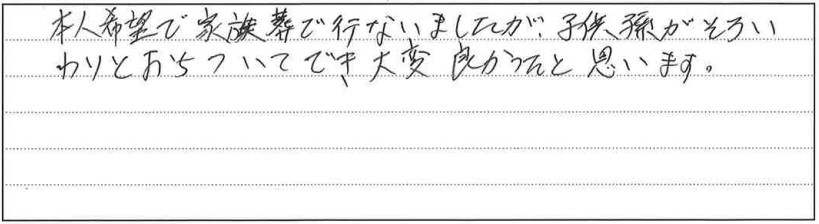 本人希望で家族葬で行ないましたが、子供、孫がそろい
わりとおちついてでき、大変良かったと思います。